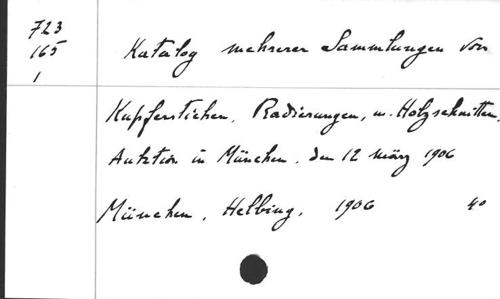 723
165
1
Katalog mehrerer Sammlungen von
Kupferstichen, Radierungen, u. Holzschnitten,
Auktion in München, den 12 März 1906
München, Helbing, 1906 4o